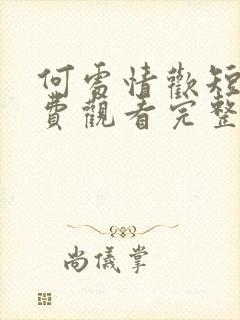 何處情歡短
費觀看完整
尚儀掌